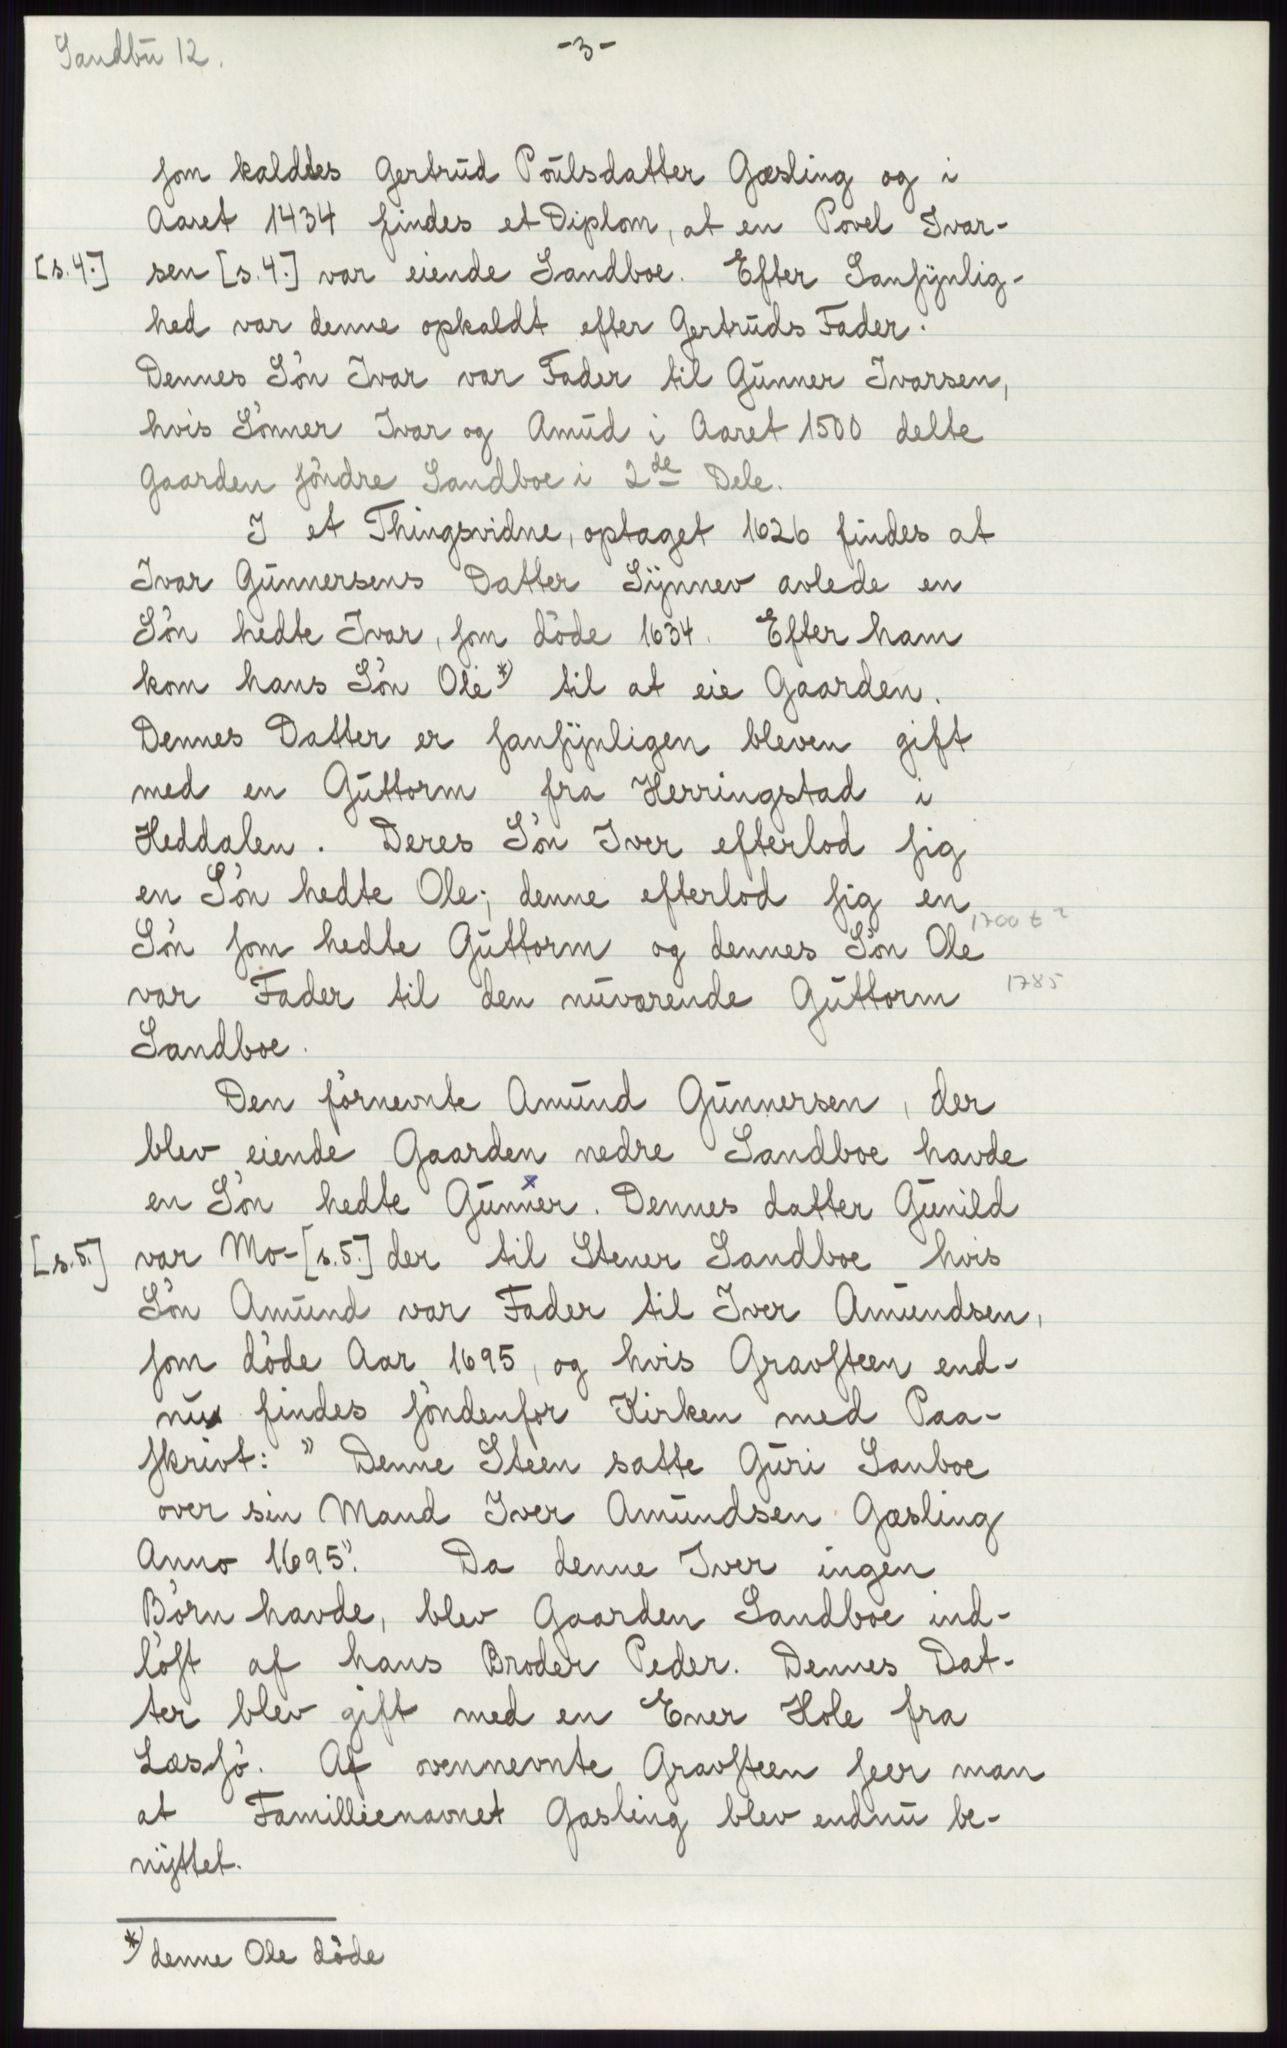 Sandbu 12.
-3-
som kaldtes Gertrud Poulsdatter Gæsling og i
Aaret 1434 findes et Diplom, at en Povel Ivar-
[s.4.] sen [s.4.] var eiende Sandboe. Efter Sansÿnlig-
hed var denne opkaldt efter Gertruds Fader.
Dennes Sön Ivar var Fader til Gunner Ivarsen,
hvis Sönner Ivar og Amud i Aaret 1500 delte
Gaarden söndre Sandboe i 2de Dele.
I et Thingsvidne, optaget 1626 findes at
Ivar Gunnersens Datter Sÿnnev avlede en
Sön hedte Ivar, som döde 1634. Efter ham
kom hans Sön Ole *) til at eie Gaarden.
Dennes Datter er sansÿnligen bleven gift
med en Guttorm fra Herringstad i
Heddalen. Deres Sön Iver efterlod sig
en Sön hedte Ole; denne efterlod sig en
Sön som hedte Guttorm og dennes Sön Ole
var Fader til den nuværende Guttorm 1785
Sandboe.
Den förnevnte Amund Gunnersen, der
blev eiende Gaarden nedre Sandboe havde
en Sön hedte Gunner x. Dennes datter Gunild
[s.5.] var Mo- [s.5.] der til Stener Sandboe hvis
Sön Amund var Fader til Iver Amundsen,
som döde Aar 1695, og hvis Gravsteen end-
nu findes söndenfor Kirken med Paa-
skrivt: " Denne Steen satte Guri Sanboe
over sin Mand Iver Amundsen Gæsling
Anno 1695". Da denne Iver ingen
Börn havde, blev Gaarden Sandboe ind-
löst af hans Broder Peder. Dennes Dat-
ter blev gift med en Ener Hole fra
Læssö. Af ovennevnte Gravsteen seer man
at Famillienavnet Gæsling blev endnu be-
nÿttet.
*) denne Ole döde